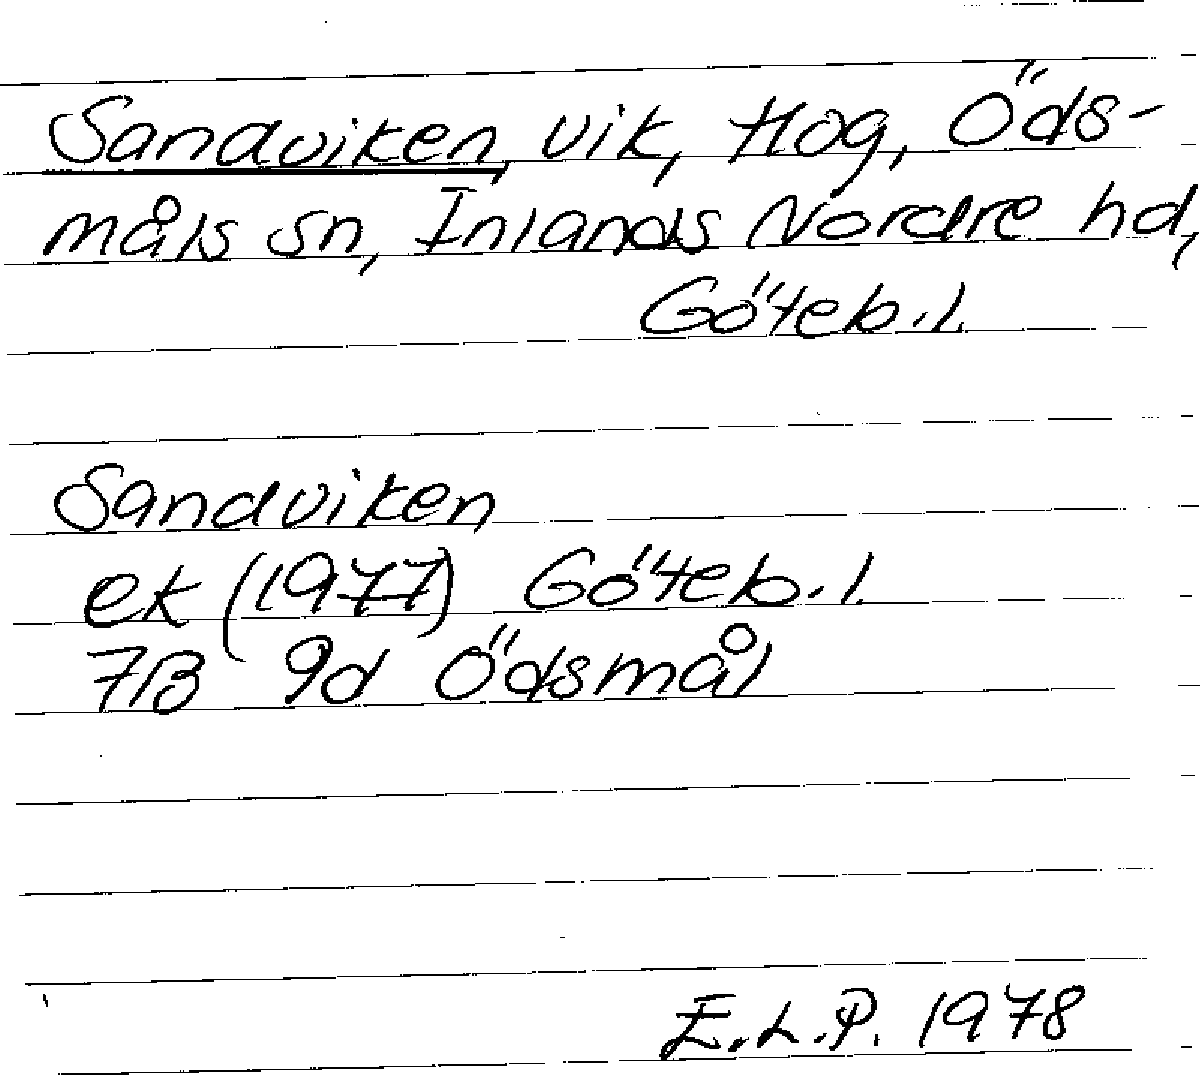 Sandviken, vik, Hog, Öds-
måls sn, Inlands Nordre hd,
Göteb.l.
Sandviken
ek (1977) Göteb.l.
7B 9d Ödsmål
E.L.P. 1978